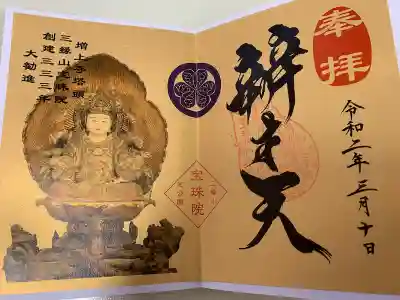 奉拝
令和二年三月十日
辨才天
増上寺塔頭
三縁山宝珠院
創建三三三年
大勧進
宝珠院